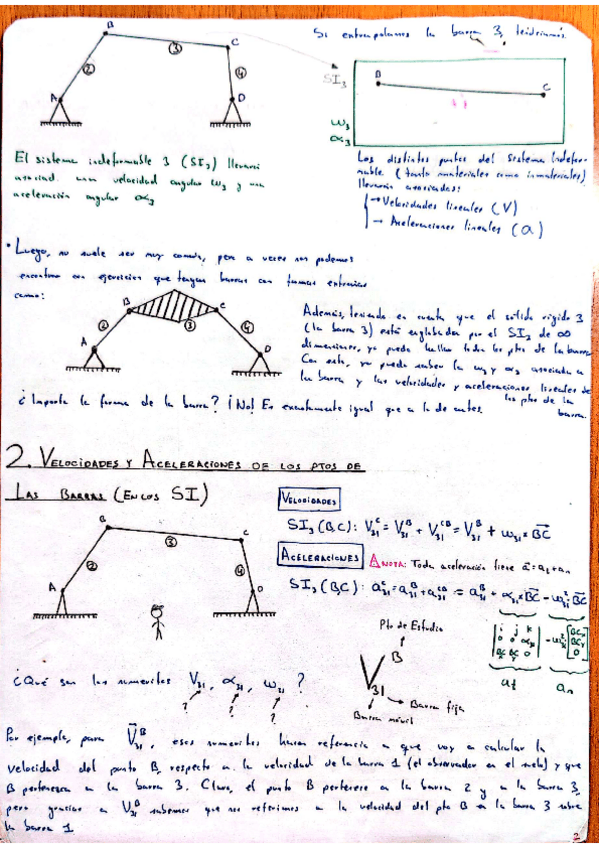 B
C
2
3
4
A
D
Si extrapolamos la barra 3, tendríamos
SI₃
B
C
ω₃
α₃
El sistema indeformable 3 (SI₃) llevará
asociad una velocidad angular ω₃ y una
aceleración angular α₃
Los distintos puntos del Sistema Indefor-
mable (tanto materiales como inmateriales)
llevarán asociadas:
→ Velocidades lineales (V)
→ Aceleraciones lineales (a)
• Luego, no suele ser muy común, pero a veces nos podemos
encontrar con ejercicios que tengan barras con formas extrañas
como:
B
C
2
3
4
A
D
Además, teniendo en cuenta que el sólido rígido 3
(la barra 3) está englobada por el SI₃ de ∞
dimensiones, yo puedo hallar todos los ptos de la barra
Con esto, yo puedo saber la ω₃ y α₃ asociada a
la barra y las velocidades y aceleraciones lineales de
los ptos de la
barra.
¿Importa la forma de la barra? ¡No! Es exactamente igual que a la de antes.
2. VELOCIDADES Y ACELERACIONES DE LOS PTOS DE
LAS BARRAS (EN LOS SI)
B
C
2
3
4
A
D
VELOCIDADES
SI₃ (B,C): V₃₁ᶜ = V₃₁ᴮ + V₃₁ᶜᴮ = V₃₁ᴮ + ω₃₁ × BC
ACELERACIONES
NOTA: Toda aceleración tiene a = aₜ + aₙ
SI₃ (B,C): a₃₁ᶜ = a₃₁ᴮ + a₃₁ᶜᴮ = a₃₁ᴮ + α₃₁ × BC - ω₃₁² BC
i j k
0 0 α₃₁
BCₓ BCᵧ 0
- ω₃₁²
BCₓ
BCᵧ
0
aₜ
aₙ
Pto de Estudio
V
B
31
Barra fija
Barra móvil
¿Qué son los numeritos V₃₁, α₃₁, ω₃₁?
? ? ?
Por ejemplo, para V₃₁ᴮ, esos numeritos hacen referencia a que voy a calcular la
velocidad del punto B, respecto a la velocidad de la barra 1 (el observador en el suelo) y que
B pertenezca a la barra 3. Claro, el punto B pertenece a la barra 2 y a la barra 3,
pero gracias a V₃₁ᴮ sabemos que nos referimos a la velocidad del pto B de la barra 3 sobre
la barra 1
2